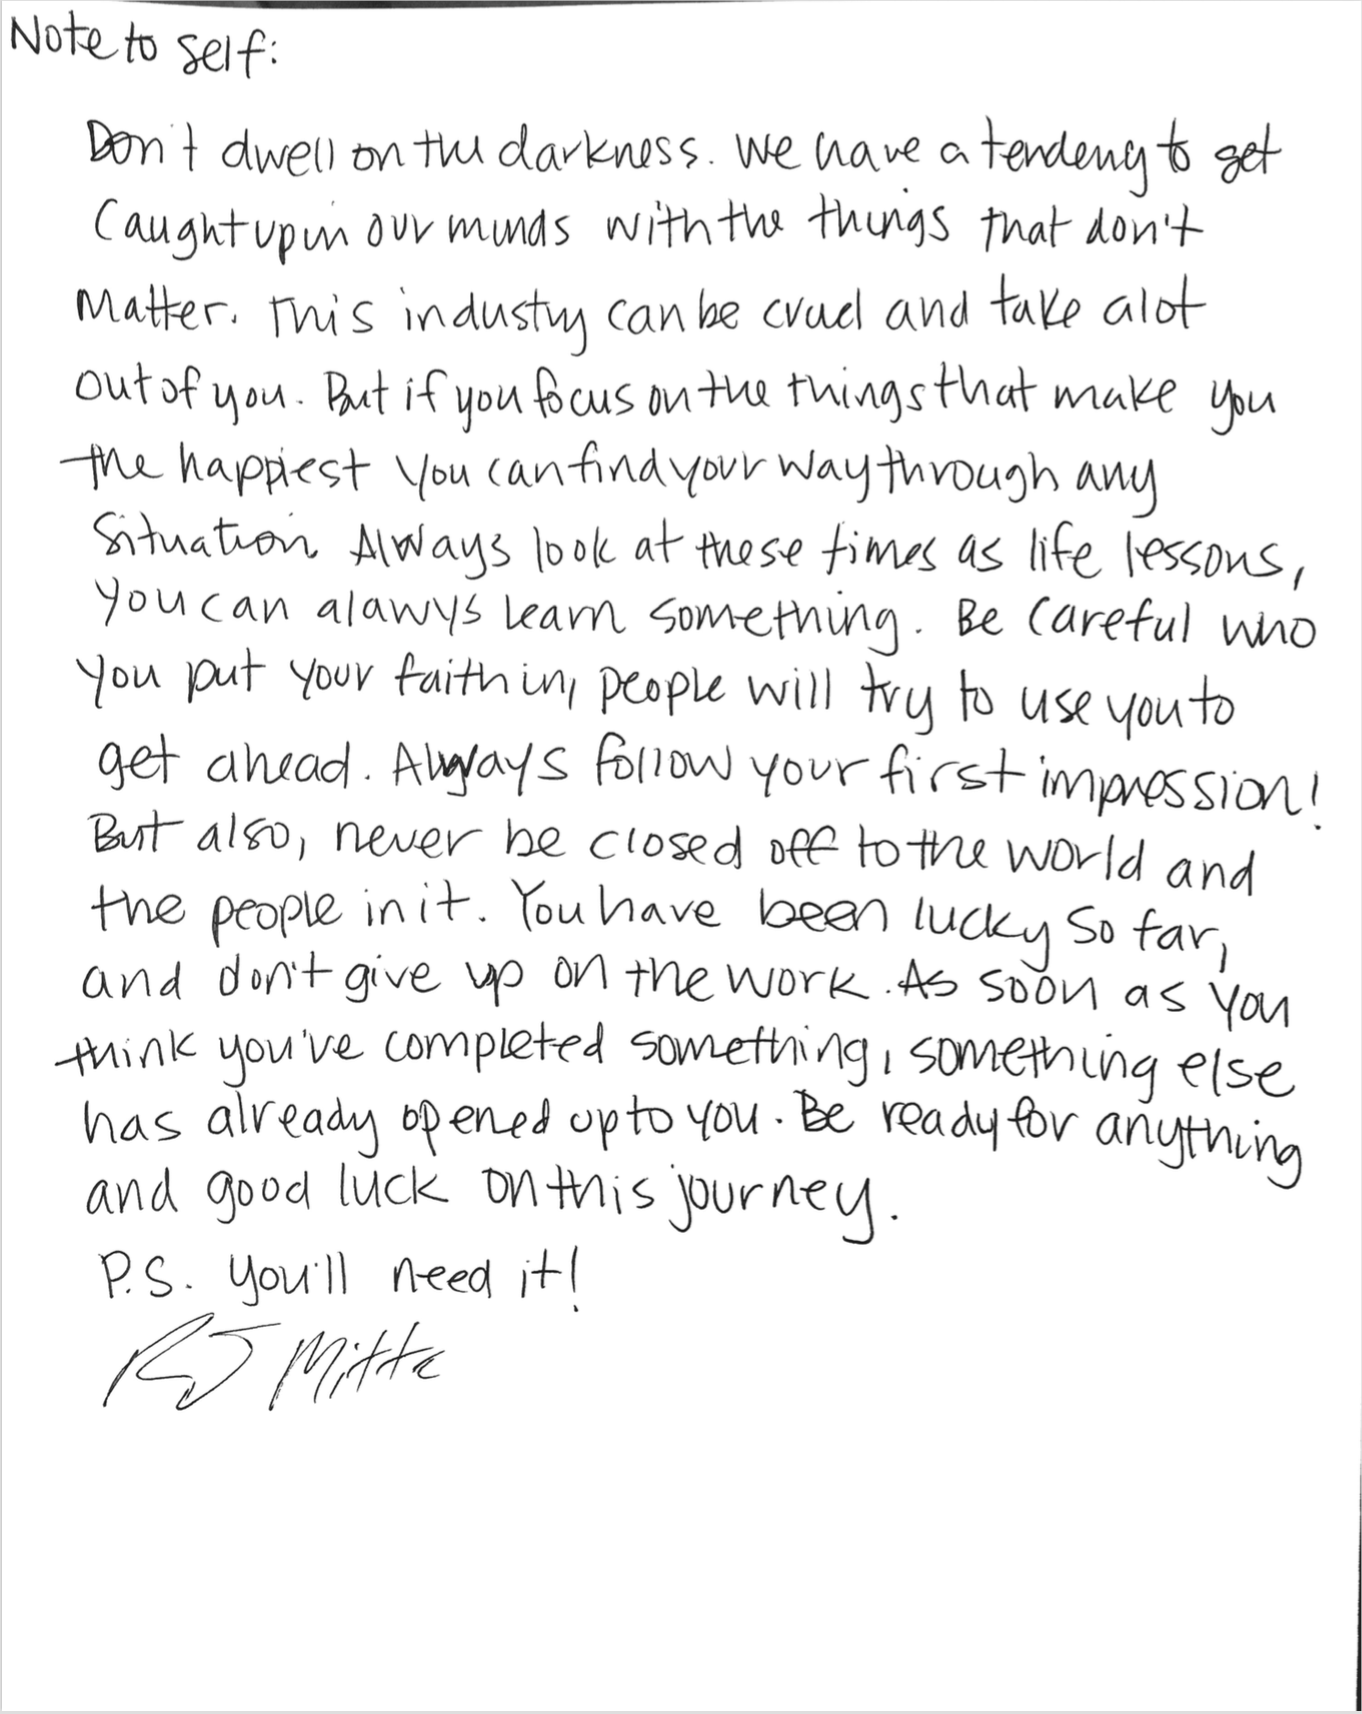 Note to self:
Don't dwell on the darkness. We have a tendency to get
Caught up in our minds with the things that don't
Matter. This industry can be cruel and take a lot
out of you. But if you focus on the things that make you
the happiest you can find your way through any
Situation. Always look at these times as life lessons,
you can alawys learn something. Be Careful who
you put your faith in, people will try to use you to
get ahead. Always follow your first impression!
But also, never be closed off to the world and
the people in it. You have been lucky so far,
and don't give up on the work. As soon as you
think you've completed something, something else
has already opened up to you. Be ready for anything
and good luck on this journey.
P.S. you'll need it!
RJ Mitte